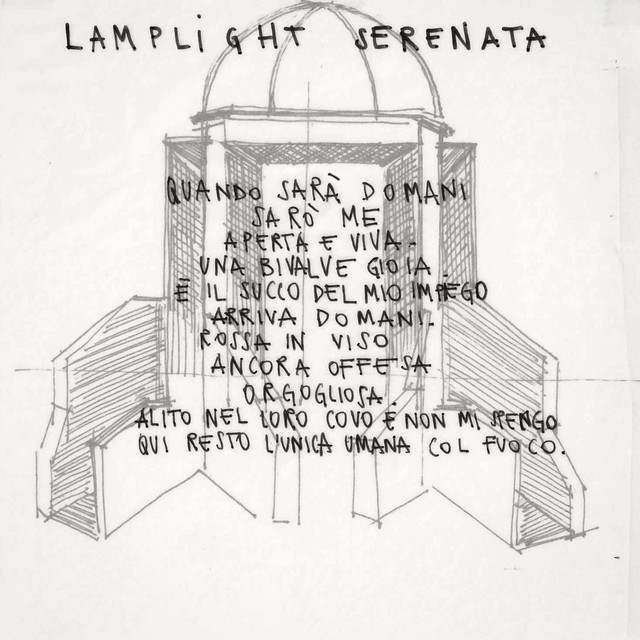 LAMPLIGHT SERENATA
QUANDO SARÀ DOMANI
SARÒ ME
APERTA E VIVA.
UNA BIVALVE GIOIA
È IL SUCCO DEL MIO IMPEGO
ARRIVA DOMANI.
ROSSA IN VISO
ANCORA OFFESA
ORGOGLIOSA.
ALITO NEL LORO COVO E NON MI SPENGO
QUI RESTO L'UNICA UMANA COL FUOCO.